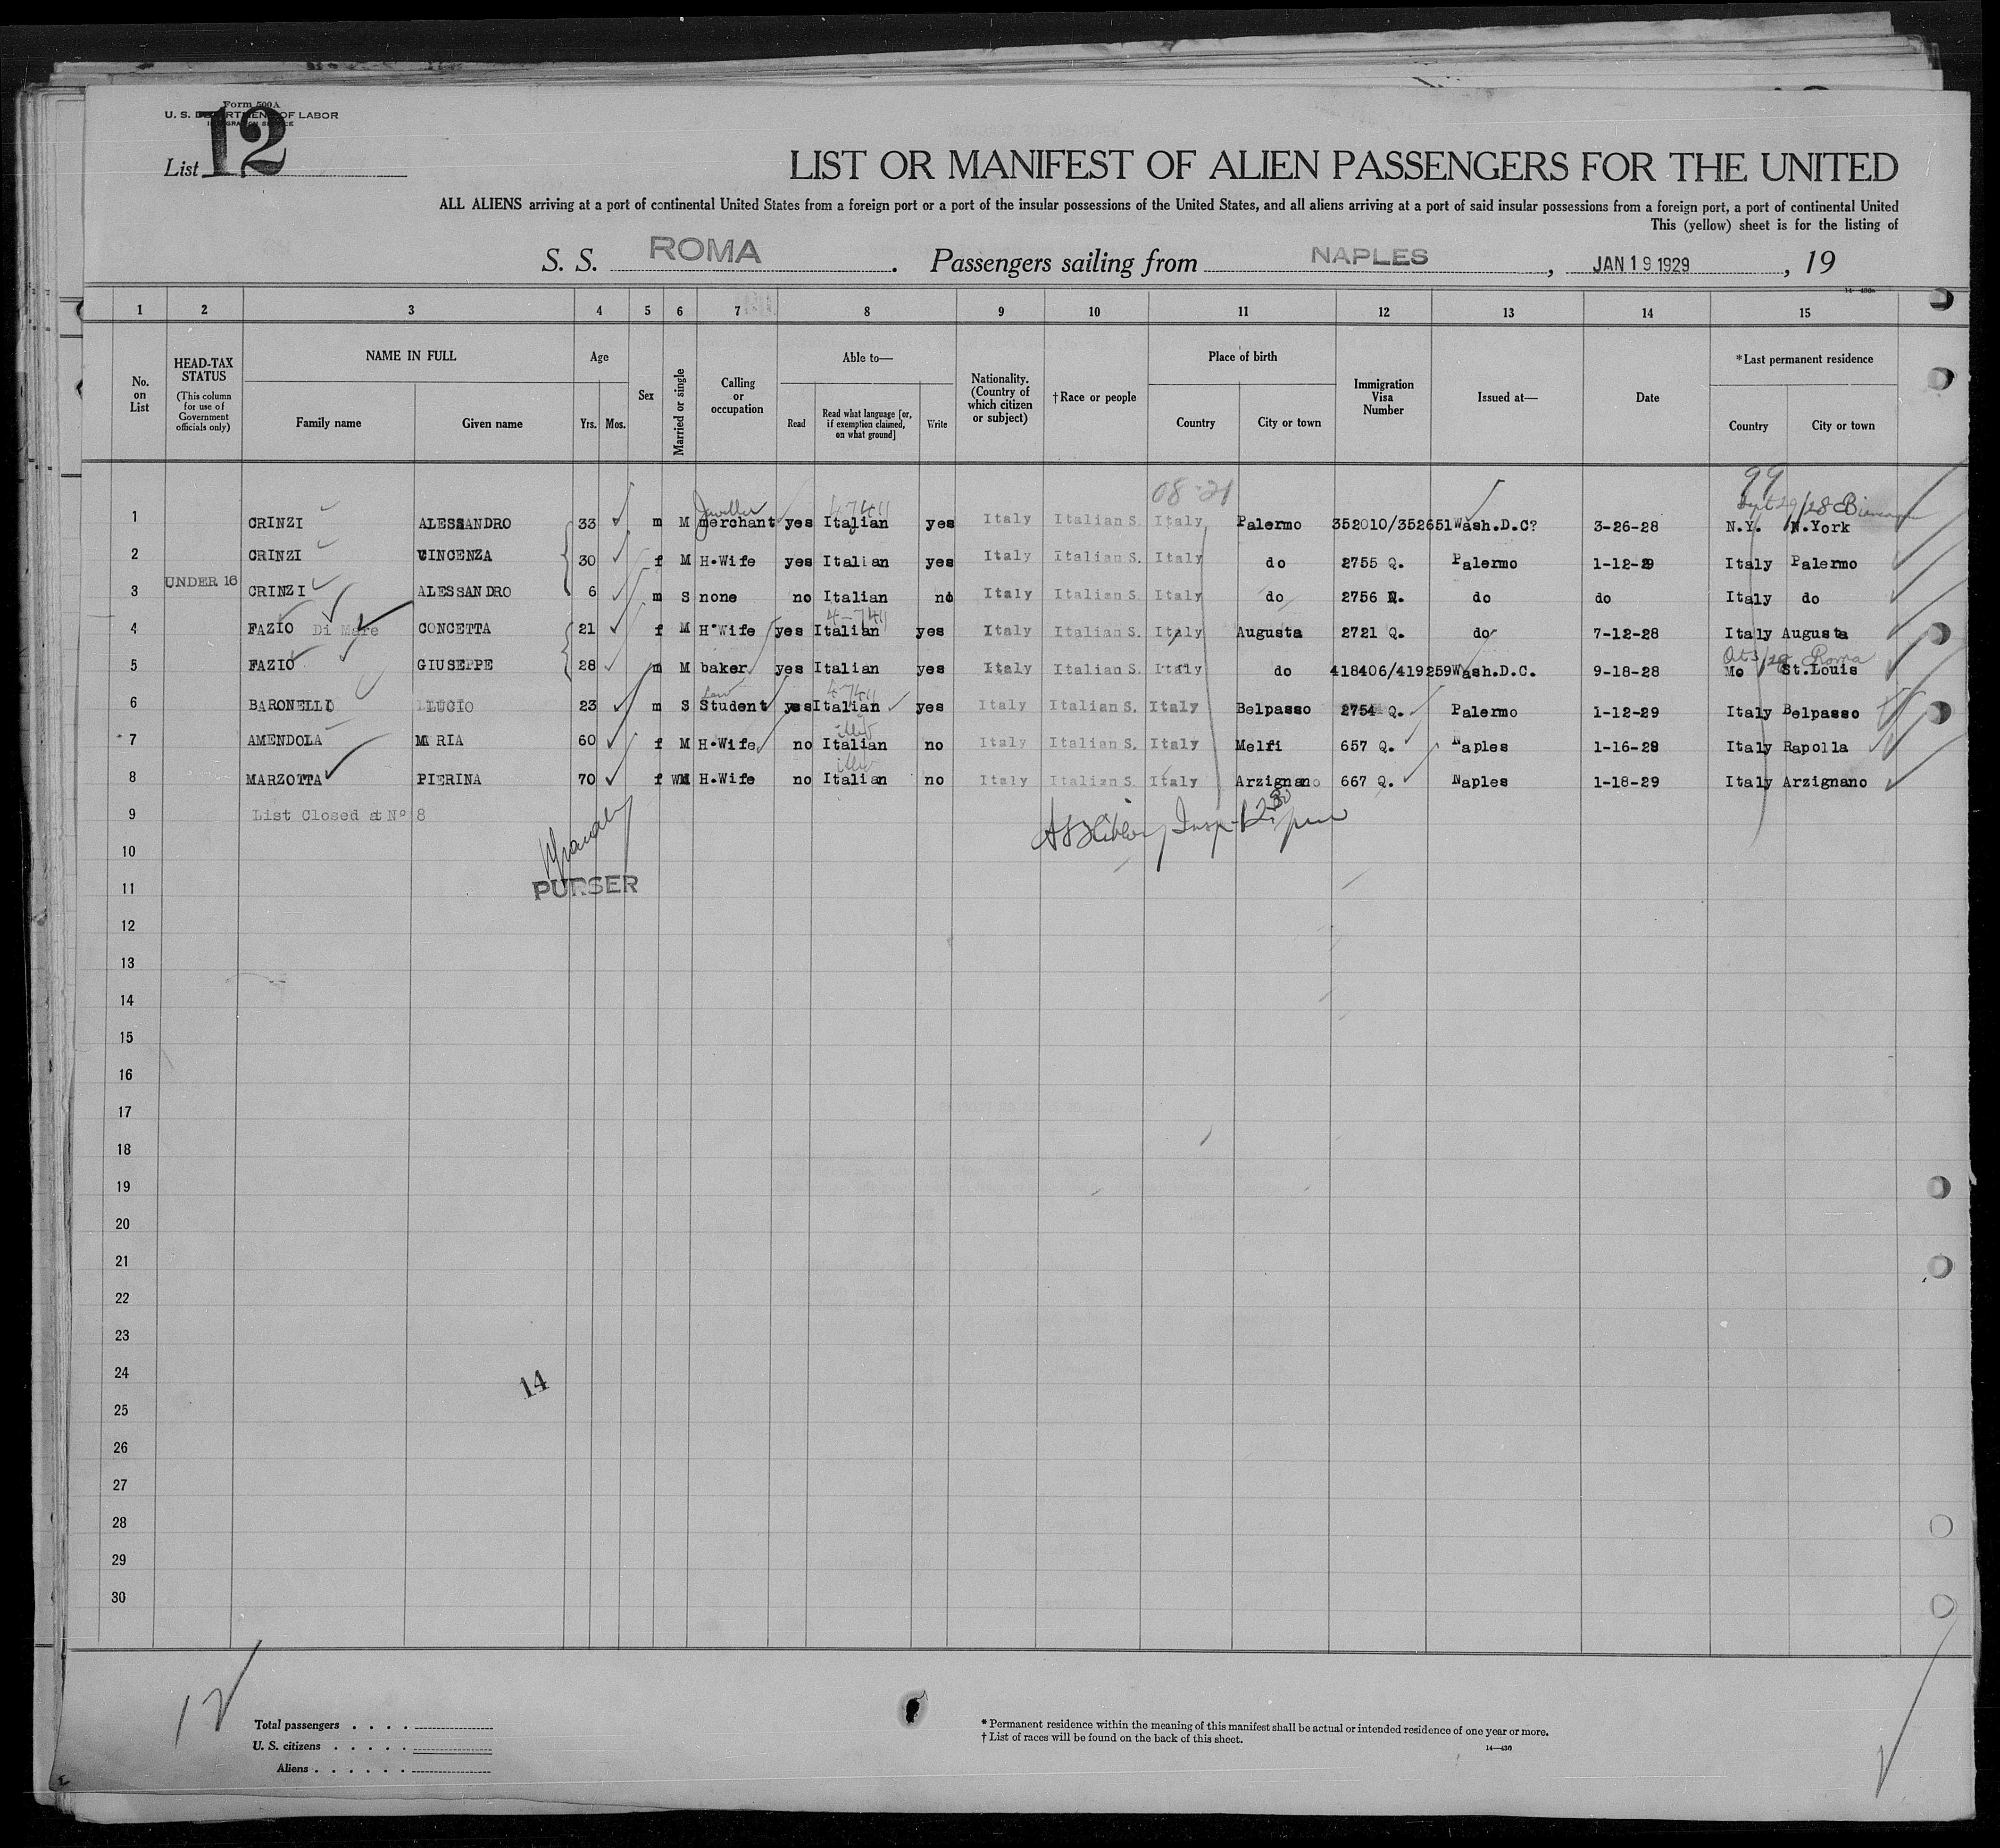 Form 500A
U. S. DEPARTMENT OF LABOR
IMMIGRATION SERVICE
List 12
LIST OR MANIFEST OF ALIEN PASSENGERS FOR THE UNITED
ALL ALIENS arriving at a port of continental United States from a foreign port or a port of the insular possessions of the United States, and all aliens arriving at a port of said insular possessions from a foreign port, a port of continental United
This (yellow) sheet is for the listing of
S. S. ROMA. Passengers sailing from NAPLES, JAN 19 1929, 19
1 2 3 4 5 6 7 8 9 10 11 12 13 14 15
No. on List
HEAD-TAX STATUS
(This column for use of Government officials only)
NAME IN FULL
Family name
Given name
Age
Yrs. Mos.
Sex
Married or single
Calling or occupation
Able to—
Read
Read what language [or, if exemption claimed, on what ground]
Write
Nationality. (Country of which citizen or subject)
†Race or people
Place of birth
Country
City or town
Immigration Visa Number
Issued at—
Date
*Last permanent residence
Country
City or town
08-21 99
Jeweller 4-7411 Sept 29/28
1 CRINZI ALESSANDRO 33 m M merchant yes Italian yes Italy Italian S. Italy Palermo 352010/352651 Wash.D.C? 3-26-28 N.Y. N.York
2 CRINZI VINCENZA 30 f M H.Wife yes Italian yes Italy Italian S. Italy do 2755 Q. Palermo 1-12-29 Italy Palermo
3 UNDER 16 CRINZI ALESSANDRO 6 m S none no Italian no Italy Italian S. Italy do 2756 do do Italy do
4-7411
4 FAZIO Di Mare CONCETTA 21 f M H.Wife yes Italian yes Italy Italian S. Italy Augusta 2721 Q. do 7-12-28 Italy Augusta
Oct 3/28 Roma
5 FAZIO GIUSEPPE 28 m M baker yes Italian yes Italy Italian S. Italy do 418406/419259 Wash.D.C. 9-18-28 Mo St.Louis
Law 4-7411
6 BARONELLI LUCIO 23 m S Student yes Italian yes Italy Italian S. Italy Belpasso 2754 Q. Palermo 1-12-29 Italy Belpasso
7 AMENDOLA MARIA 60 f M H.Wife no Italian no Italy Italian S. Italy Melfi 657 Q. Naples 1-16-29 Italy Rapolla
8 MARZOTTA PIERINA 70 f WM H.Wife no Italian no Italy Italian S. Italy Arzignano 667 Q. Naples 1-18-29 Italy Arzignano
9 List Closed at Nº 8
10
PURSER
11
12
13
14
15
16
17
18
19
20
21
22
23
24
14
25
26
27
28
29
30
12
Total passengers . . . .
U. S. citizens . . . . .
Aliens . . . . . .
* Permanent residence within the meaning of this manifest shall be actual or intended residence of one year or more.
† List of races will be found on the back of this sheet.
14—430